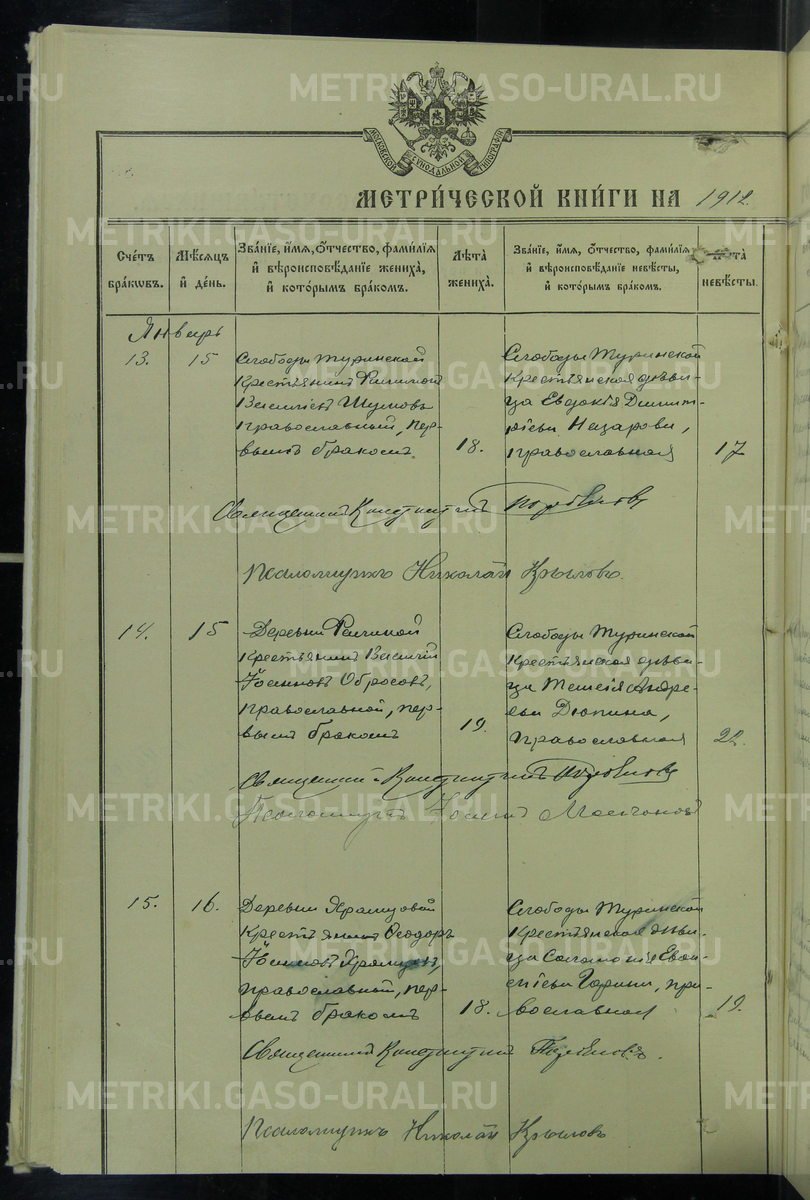 METRIKI.GASO-URAL.RU
МОСКОВСКОЙ СѴНОДАЛЬНОЙ ТИПОГРАФІИ
МЕТРИ́ЧЕСКОЙ КНИ́ГИ НА 1912.
Сче́тъ бра́кѡвъ.
Мѣ́сяцъ и҆ де́нь.
Зва́нїе, и҆́мѧ, ѻ҆́тчество, фами́лїѧ
и҆ вѣроисповѣ́данїе жениха̀,
и҆ кото́рымъ бра́комъ.
Лѣ́та жениха̀.
Зва́нїе, и҆́мѧ, ѻ҆́тчество, фами́лїѧ
и҆ вѣроисповѣ́данїе невѣ́сты,
и҆ кото́рымъ бра́комъ.
невѣ́сты.
Январь
13.
15
Слободы Туринской
крестьянинъ
Шумовъ
православный, пер-
вымъ бракомъ
18.
Слободы Туринской
крестьянская дѣви-
ца Евдокія Димит-
ріева Назарова,
православная
17
Священникъ Константинъ
Псаломщикъ Николай Крыловъ.
14.
15
Деревни
крестьянинъ Василій
Обросовъ,
православной, пер-
вымъ бракомъ
19.
Слободы Туринской
крестьянская дѣви-
ца Андре-
ева Дюпина,
православная
22.
Священникъ Константинъ
Псаломщикъ
15.
16.
Деревни Храмцовой
крестьянинъ Ѳеодоръ
Храмцовъ,
православный, пер-
вымъ бракомъ
18.
Слободы Туринской
крестьянская дѣви-
ца Соломонія
Горина, пра-
вославная
19.
Священникъ Константинъ
Псаломщикъ Николай Крыловъ